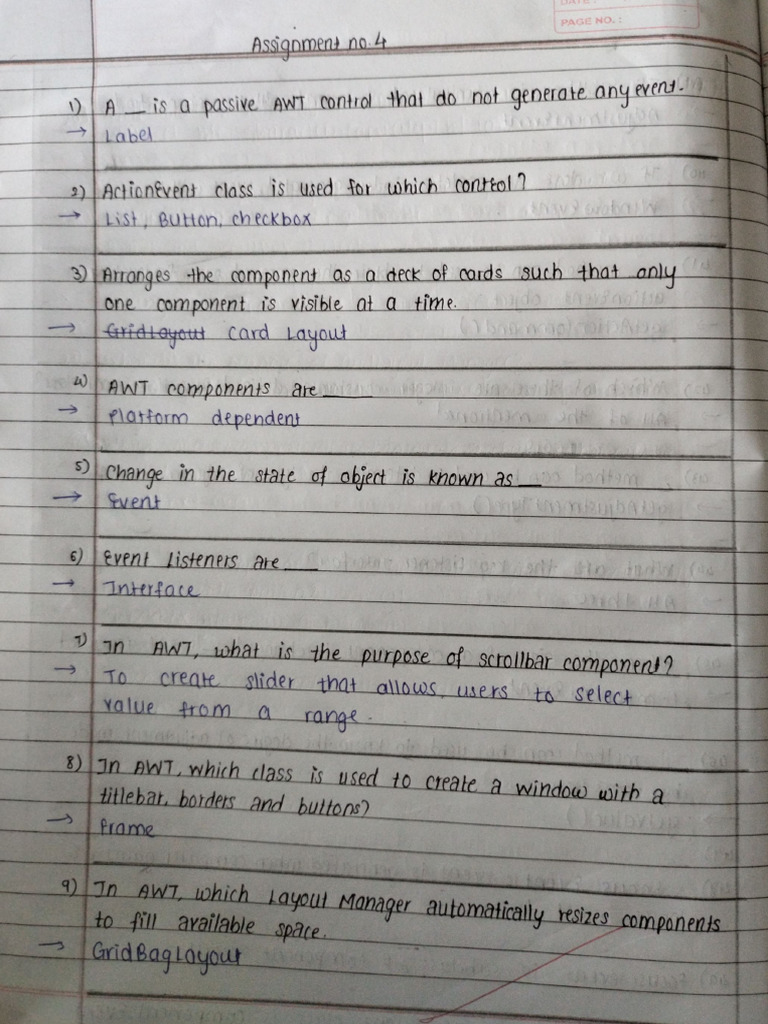 DATE:
PAGE NO.:
Assignment no.4
1) A __ is a passive AWT control that do not generate any event.
→ Label
2) ActionEvent class is used for which control?
→ List, Button, checkbox
3) Arranges the component as a deck of cards such that only
one component is visible at a time.
→ GridLayout Card Layout
4) AWT components are ____
→ Platform dependent
5) Change in the state of object is known as __
→ Event
6) Event Listeners are ___
→ Interface
7) In AWT, what is the purpose of scrollbar component?
→ To create slider that allows users to select
value from a range.
8) In AWT, which class is used to create a window with a
titlebar, borders and buttons?
→ Frame
9) In AWT, which Layout Manager automatically resizes components
to fill available space.
→ GridBagLayout